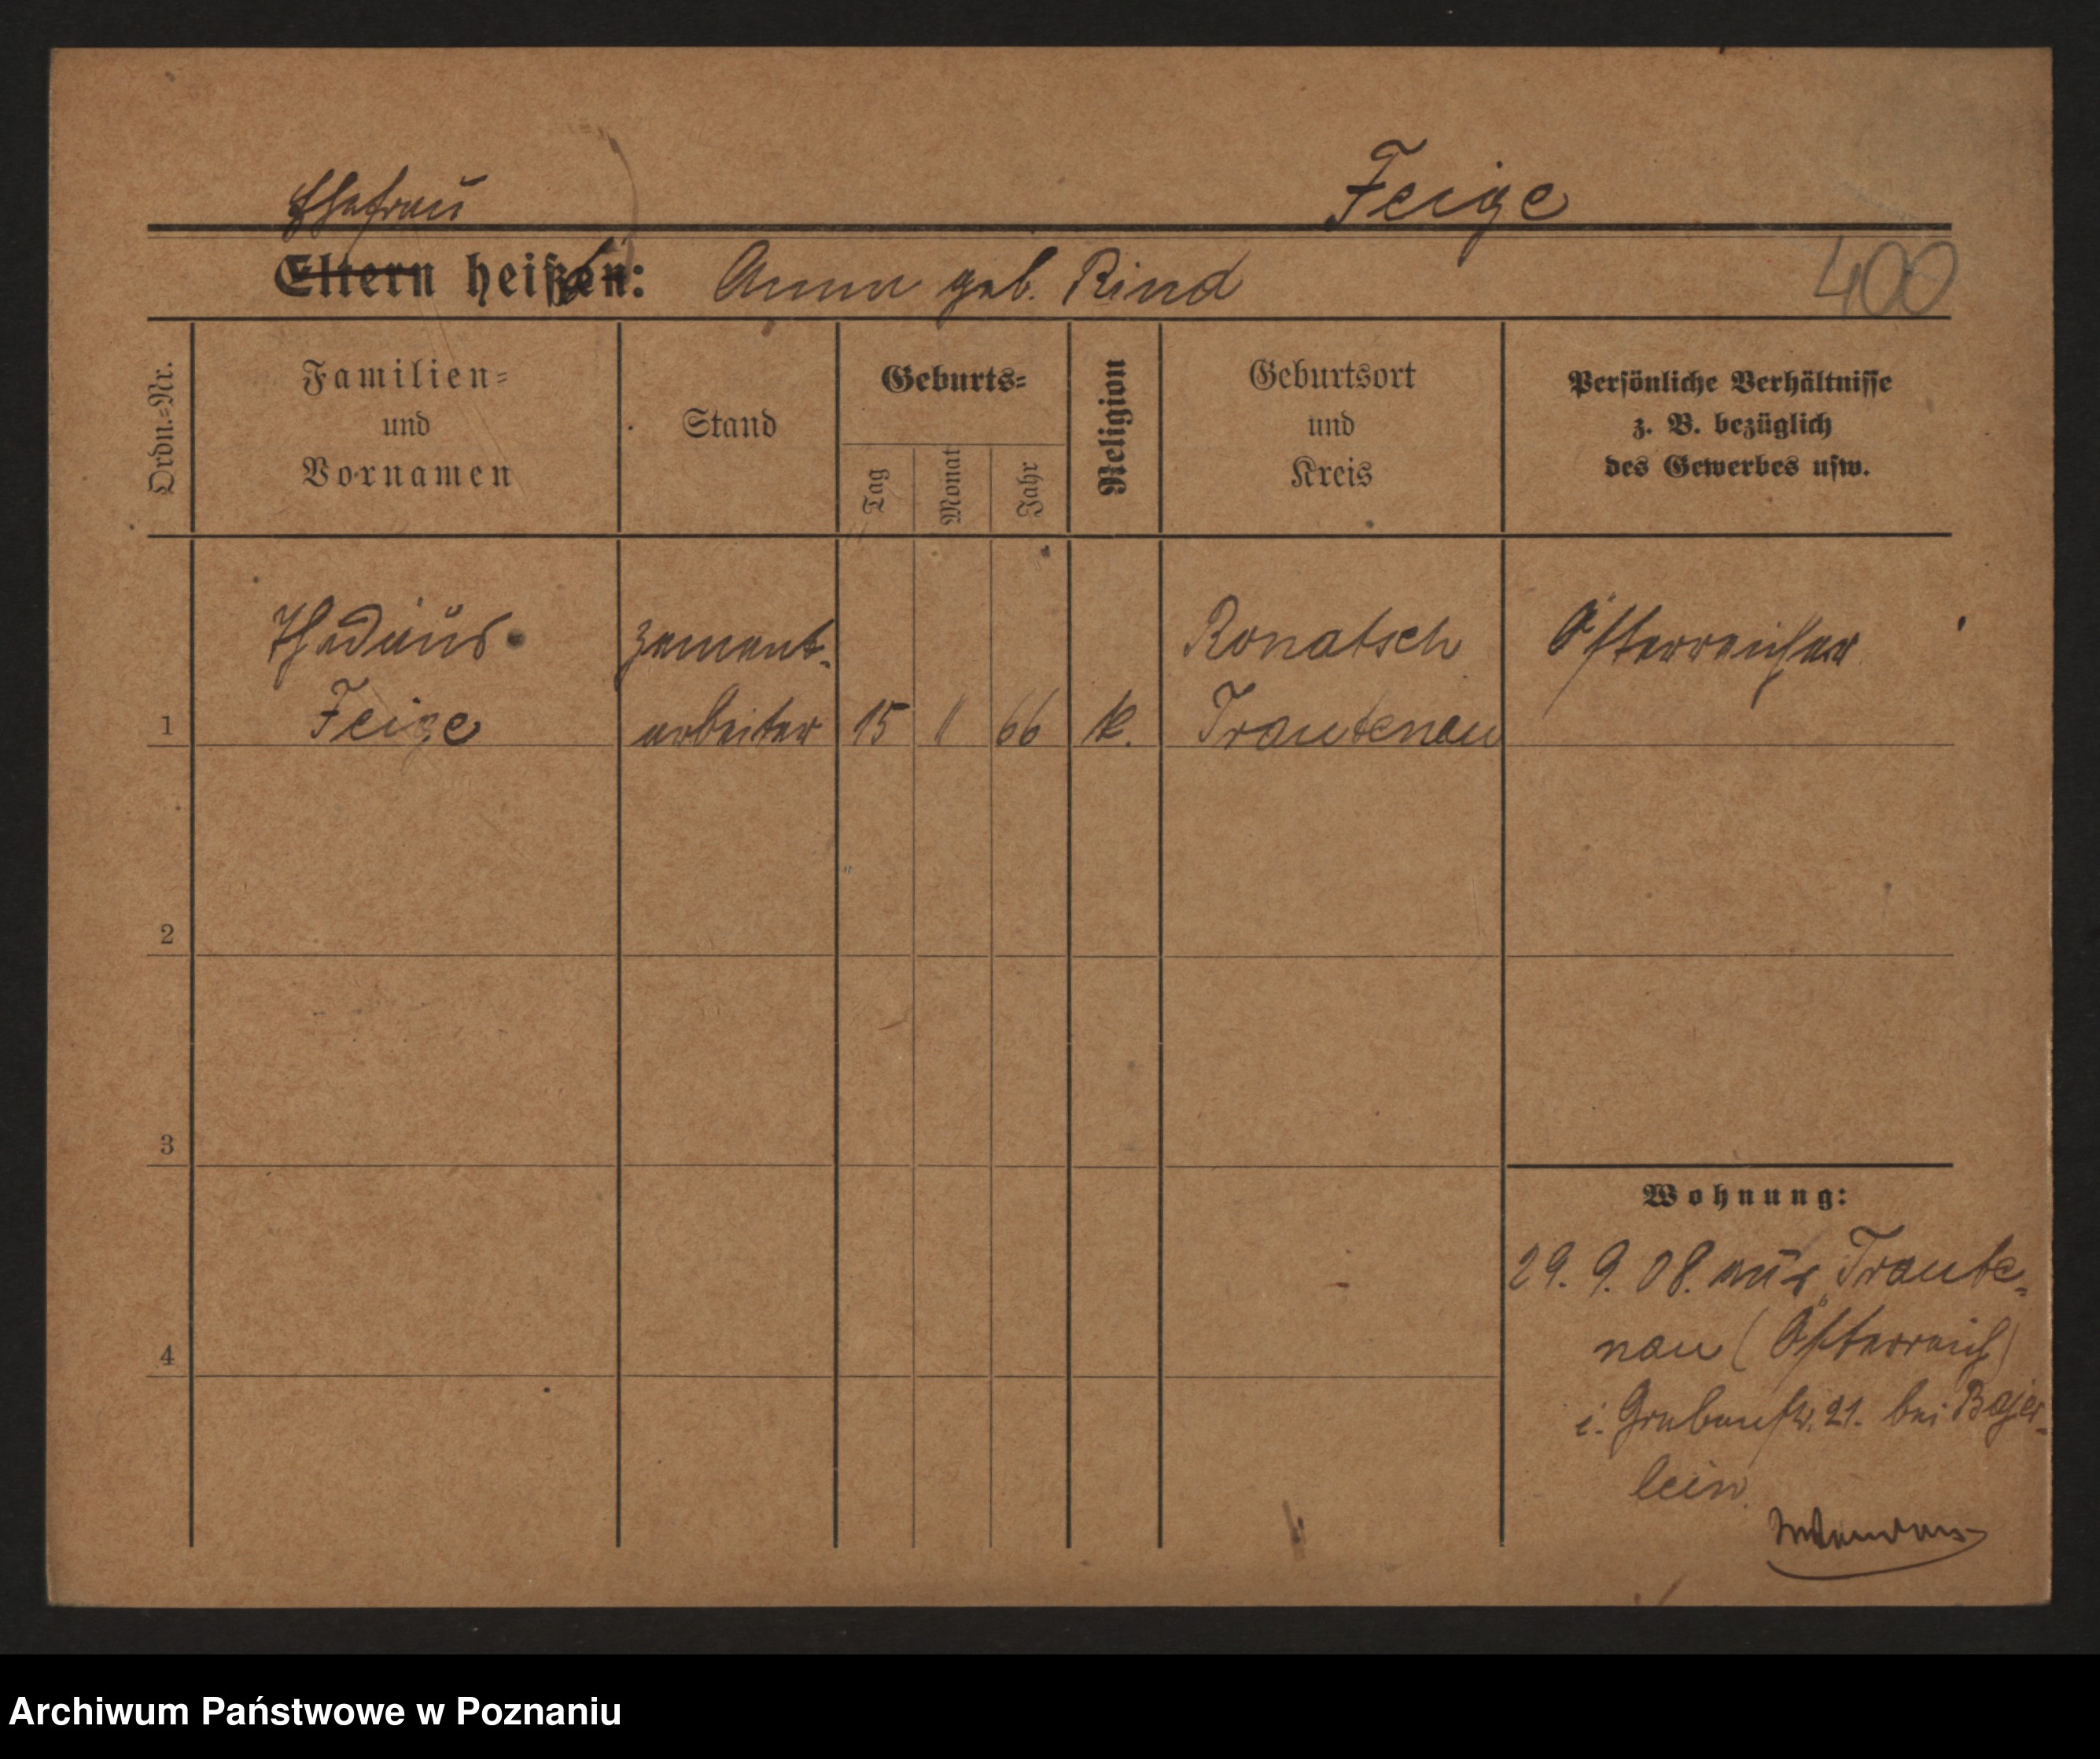 Ehefrau Feige
Eltern heißen: Anna geb. Rind 400
Ordn.-Nr.
Familien-
und
Vornamen
Stand
Geburts-
Tag
Monat
Jahr
Religion
Geburtsort
und
Kreis
Persönliche Verhältnisse
z. B. bezüglich
des Gewerbes usw.
Thadäus zement- Ronatsch Österreicher
1 Feige arbeiter 15 11 66 k. Trautenau
2
3
4
Wohnung:
29. 9. 08. aus Traute-
nau (Österreich)
i. Grabenstr. 21. bei Bajer-
lein.
Archiwum Państwowe w Poznaniu